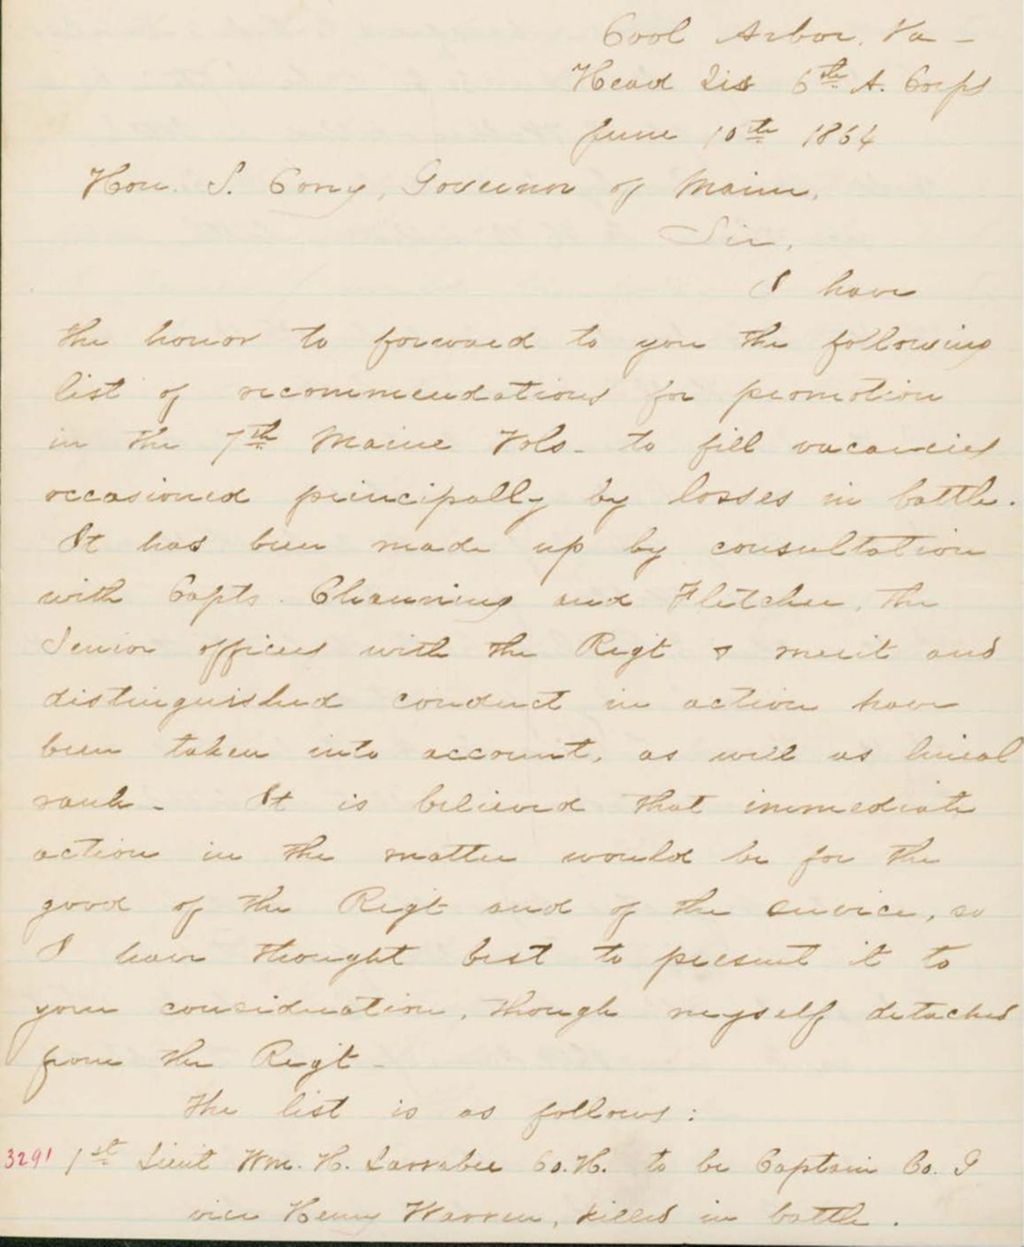 Cool Arbor, Va -
Head Qrs 6th A. Corps
June 10th 1864
Hon. S. Cony, Governor of Maine,
Sir,
I have
the honor to forward to you the following
list of recommendations for promotion
in the 7th Maine Vols - to fill vacancies
occasioned principally by losses in battle.
It has been made up by consultation
with Capts. Channing and Fletcher, the
Senior officers with the Regt & merit and
distinguished conduct in action have
been taken into account, as well as lineal
rank - It is believed that immediate
action in the matter would be for the
good of the Regt and of the service, so
I have thought best to present it to
your consideration, though myself detached
from the Regt -
The list is as follows:
3291 1st Lieut Wm. H. Larrabee Co. H. to be Captain Co. I
vice Henry Warren, killed in battle.